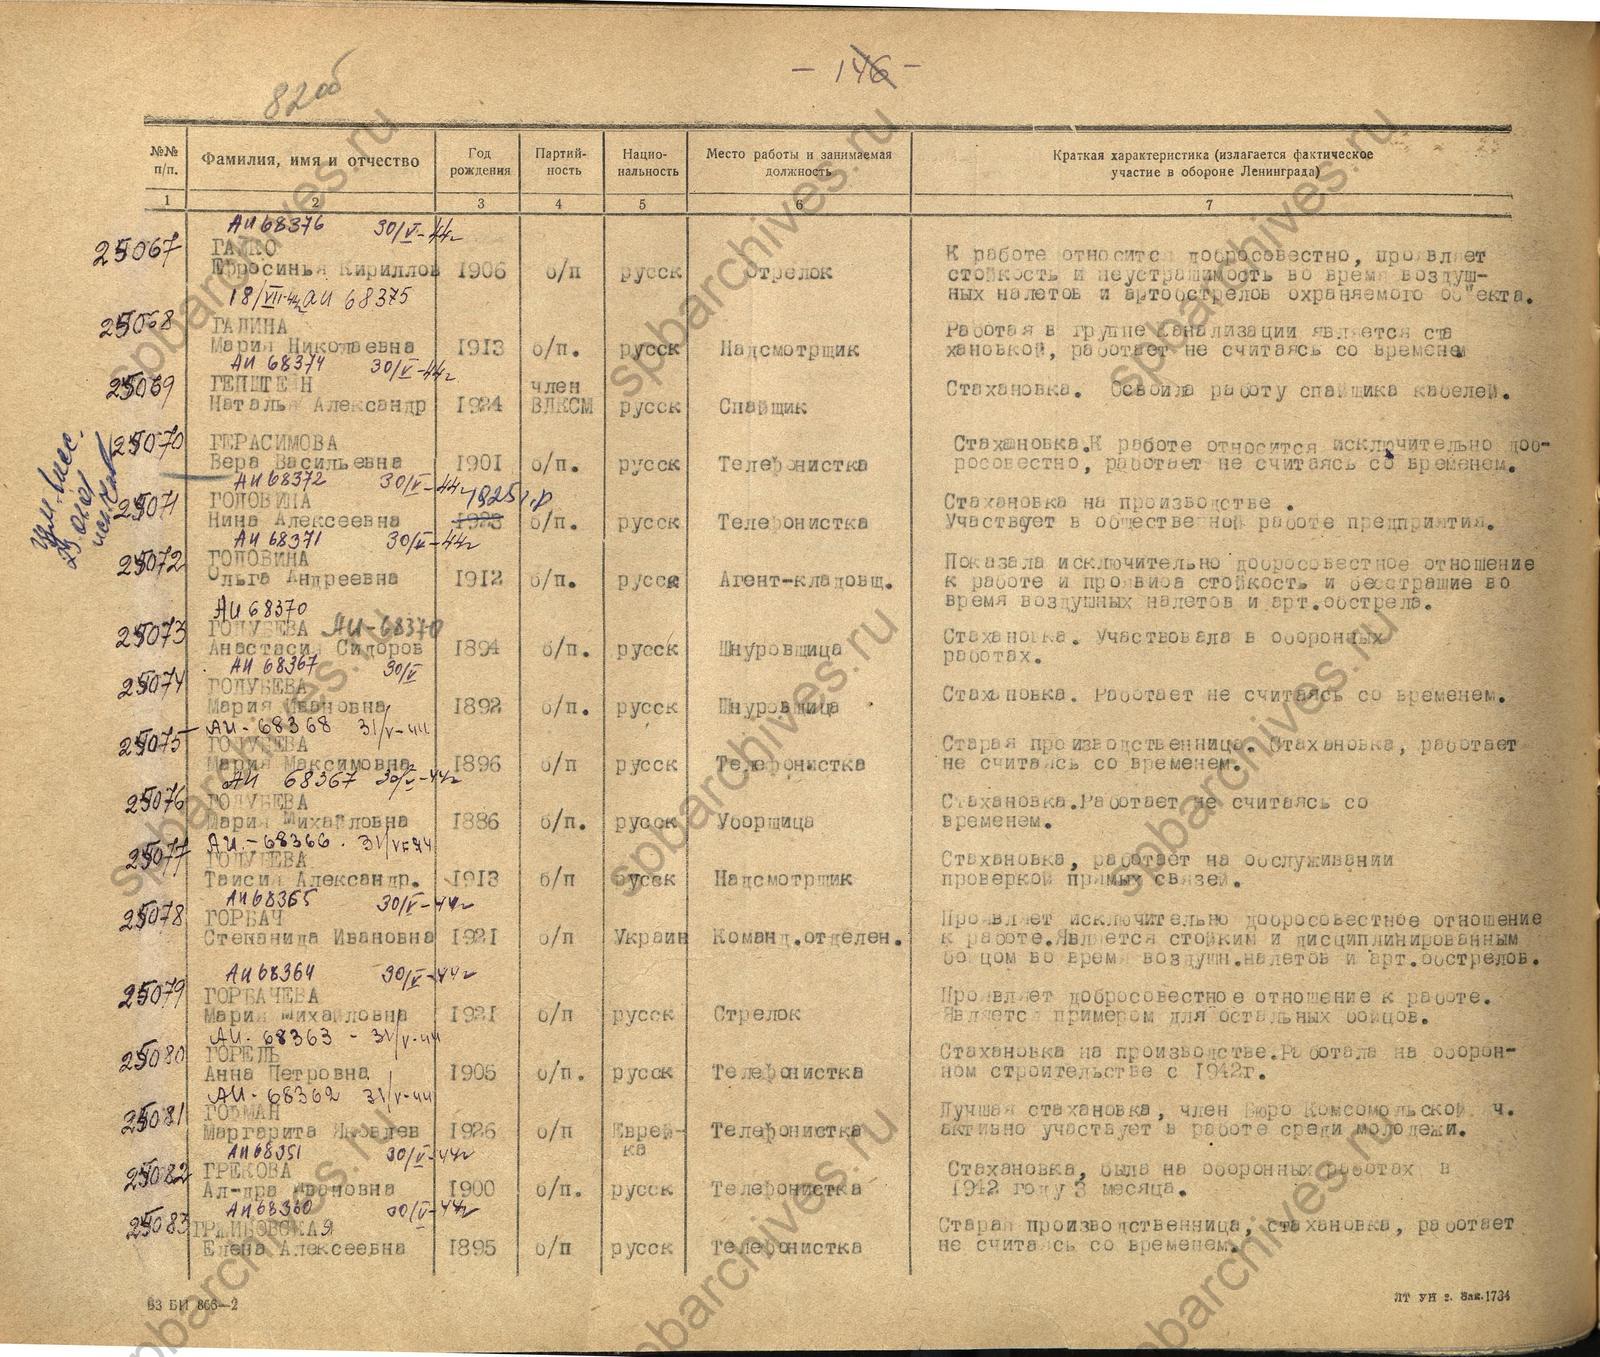 - 146 -
82об
№№ п/п.
Фамилия, имя и отчество
Год рождения
Партий-ность
Нацио-нальность
Место работы и занимаемая должность
Краткая характеристика (излагается фактическое участие в обороне Ленинграда)
1 2 3 4 5 6 7
АИ 68376 30/V-44г
25067 ГАЙКО К работе относится добросовестно, проявляет
Ефросинья Кириллов 1906 б/п русск Стрелок стойкость и неустрашимость во время воздуш-
ных налетов и артобстрелов охраняемого об"екта.
18/VII-44 АИ 68375
25068 ГАЛИНА Работая в группе Канализации является ста
Мария Николаевна 1913 б/п. русск Надсмотрщик хановкой, работает не считаясь со временем
АИ 68374 30/V-44г
25069 ГЕПШТЕЙН член Стахановка. Освоила работу спайщика кабелей.
Наталья Александр 1924 ВЛКСМ русск Спайщик
25070 ГЕРАСИМОВА Стахановка.К работе относится исключительно доб-
Вера Васильевна 1901 б/п. русск Телефонистка росовестно, работает не считаясь со временем.
АИ 68372 30/V-44г 1925 г.р
25071 ГОЛОВИНА Стахановка на производстве .
Нина Алексеевна 1923 б/п. русск Телефонистка Участвует в общественной работе предприятия.
АИ 68371 30/V-44г
25072 ГОЛОВИНА Показала исключительно добросовестное отношение
Ольга Андреевна 1912 б/п. русск Агент-кладовщ. к работе и проявила стойкость и бесстрашие во
время воздушных налетов и арт.обстрела.
АИ 68370
25073 ГОЛУБЕВА АИ-68370 Стахановка. Участвовала в оборонных
Анастасия Сидоров 1894 б/п. русск Шнуровщица работах.
АИ 68367 30/V
25074 ГОЛУБЕВА Стахановка. Работает не считаясь со временем.
Мария Ивановна 1892 б/п. русск Шнуровщица
АИ-68368 31/V-44
25075 ГОЛУБЕВА Старая производственница. Стахановка, работает
Мария Максимовна 1896 б/п русск Телефонистка не считаясь со временем.
АИ 68367 30/V-44г
25076 ГОЛУБЕВА Стахановка.Работает не считаясь со
Мария Михайловна 1886 б/п. русск Уборщица временем.
АИ-68366. 31/V-44
25077 ГОЛУБЕВА Стахановка, работает на обслуживании
Таисия Александр. 1913 б/п русск Надсмотрщик проверкой прямых связей.
АИ 68365 30/V-44г
25078 ГОРБАЧ Проявляет исключительно добросовестное отношение
Степанида Ивановна 1921 б/п Украин Команд.отделен. к работе.Является стойким и дисциплинированным
бойцом во время воздушн.налетов и арт.обстрелов.
АИ 68364 30/V-44г
25079 ГОРБАЧЕВА Проявляет добросовестное отношение к работе.
Мария Михайловна 1921 б/п русск Стрелок Является примером для остальных бойцов.
АИ-68363 - 31/V-44
25080 ГОРЕЛЬ Стахановка на производстве.Работала на оборон-
Анна Петровна 1905 б/п. русск Телефонистка ном строительстве с 1942г.
АИ-68362 31/V-44
25081 ГОФМАН Лучшая стахановка, член Бюро Комсомольской. ч.
Маргарита Яковлев 1926 б/п Еврей- Телефонистка активно участвует в работе среди молодежи.
ка
АИ 68351 30/V-44г
25082 ГРЕКОВА Стахановка, была на оборонных работах в
Ал-дра Ивоновна 1900 б/п. русск Телефонистка 1942 году 3 месяца.
АИ 68360 30/V-44г
25083 ГРЖИБОВСКАЯ Старая производственница, стахановка, работает
Елена Алексеевна 1895 б/п русск Телефонистка не считаясь со временем.
ВЗ БИ 866—2
ЛТ УН г. Зак.1734
spbarchives.ru